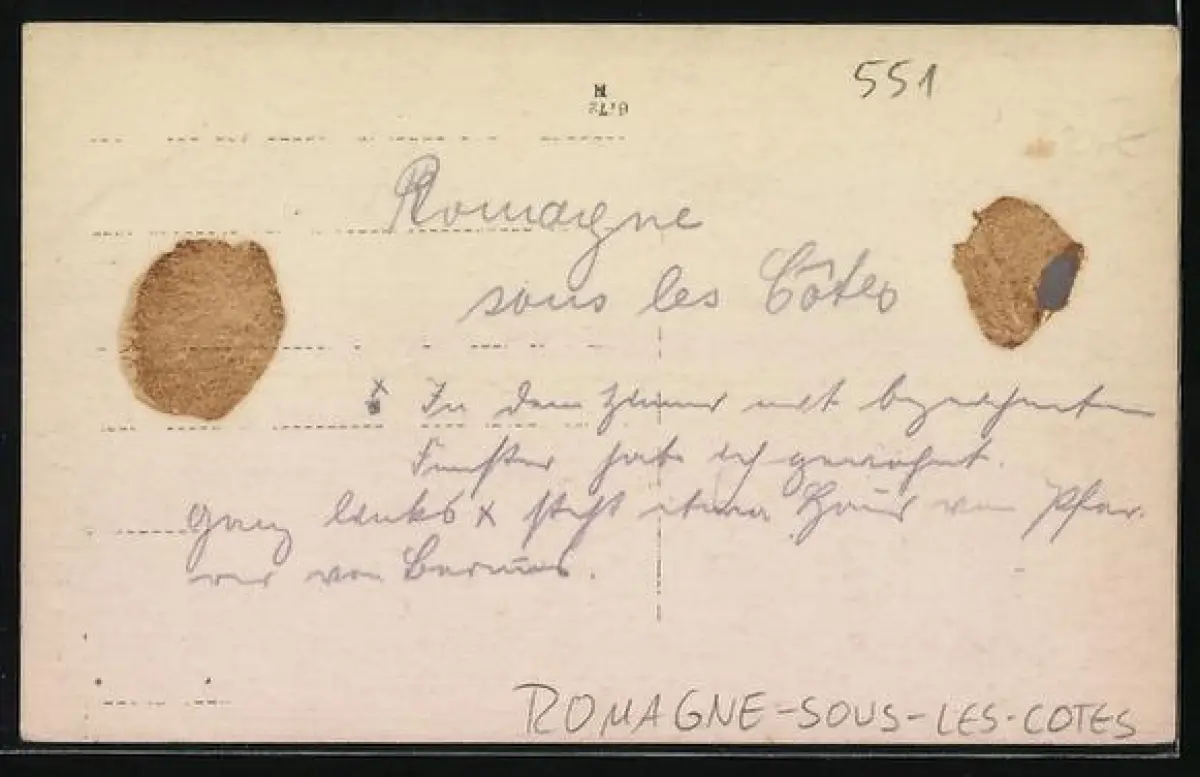 551
Romagne
sous les Côtes
x In dem Zimmer mit bezeichneten
Fenster habe ich gewohnt.
Ganz links x steht Haus von Pfar-
rer von
ROMAGNE-SOUS-LES-COTES